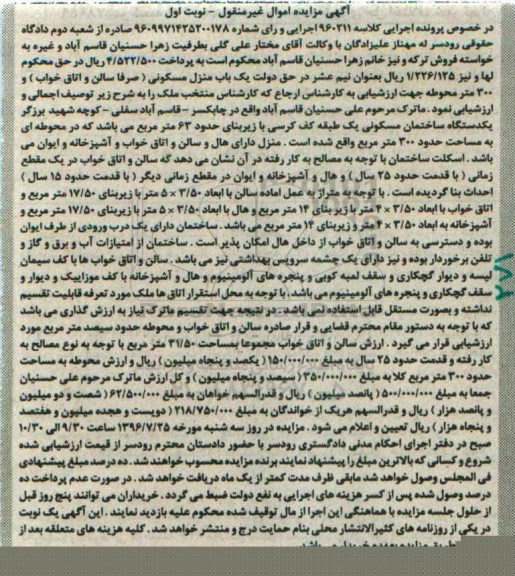 آگهی مزایده اموال غیرمنقول - نوبت اول
در خصوص پرونده اجرایی کلاسه ۹۶۰۲۱۱ اجرایی و رای شماره ۹۶۰۹۹۷۱۴۲۵۳۰۰۱۷۸ صادره از شعبه دوم دادگاه
حقوقی رودسر له مهناز علیزادگان با وکالت آقای مختار علی گلی بطرفیت زهرا حسنیان قاسم آباد و غیره به
خواسته فروش ترکه و نیز خانم زهرا حسنیان قاسم آباد محکوم است به پرداخت ۴/۵۲۲/۵۰۰ ریال در حق محکوم
لها و نیز ۱/۲۲۶/۱۲۵ ریال بعنوان نیم عشر در حق دولت یک باب منزل مسکونی ( صرفا سالن و اتاق خواب ) و
۳۰۰ متر محوطه جهت ارزشیابی به کارشناس ارجاع که کارشناس منتخب ملک را به شرح زیر توصیف اجمالی و
ارزشیابی نمود . ماترک مرحوم علی حسنیان قاسم آباد واقع در چابکسر - قاسم آباد سفلی - کوچه شهید برزگر
یکدستگاه ساختمان مسکونی یک طبقه کف کرسی با زیربنای حدود ۶۳ متر مربع می باشد که در محوطه ای
به مساحت حدود ۳۰۰ متر مربع واقع شده است . منزل دارای هال و سالن و اتاق خواب و آشپزخانه و ایوان می
باشد . اسکلت ساختمان با توجه به مصالح به کار رفته در آن نشان می دهد که سالن و اتاق خواب در یک مقطع
زمانی ( با قدمت حدود ۲۵ سال ) و هال و آشپزخانه و ایوان در مقطع زمانی دیگر ( با قدمت حدود ۱۵ سال )
احداث بنا گردیده است . با توجه به متراژ به عمل آماده سالن با ابعاد ۳/۵۰ × ۵ متر با زیربنای ۱۷/۵۰ متر مربع و
اتاق خواب با ابعاد ۳/۵۰ × ۴ متر با زیر بنای ۱۴ متر مربع و هال با ابعاد ۳/۵۰ × ۵ متر با زیربنای ۱۷/۵۰ متر مربع و
آشپزخانه به ابعاد ۳/۵۰ × ۴ متر و زیربنای ۱۴ متر مربع می باشد . ساختمان دارای یک درب ورودی از طرف ایوان
بوده و دسترسی به سالن و اتاق خواب از داخل هال امکان پذیر است . ساختمان از امتیازات آب و برق و گاز و
تلفن برخوردار بوده و نیز دارای یک چشمه سرویس بهداشتی نیز می باشد . سالن و اتاق خواب ها با کف سیمان
لیسه و دیوار گچکاری و سقف لمبه کوبی و پنجره های آلومینیوم و هال و آشپزخانه با کف موزاییک و دیوار و
سقف گچکاری و پنجره های آلومینیوم می باشد . با توجه به محل استقرار اتاق ها ملک مورد تعرفه قابلیت تقسیم
نداشته و بصورت مستقل قابل استفاده نمی باشد . در نتیجه جهت تقسیم ماترک نیاز به ارزش گذاری می باشد
که با توجه به دستور مقام محترم قضایی و قرار صادره سالن و اتاق خواب و محوطه حدود سیصد متر مربع مورد
ارزشیابی قرار می گیرد . ارزش سالن و اتاق خواب مجموعا بمساحت ۳۱/۵۰ متر مربع با توجه به نوع مصالح به
کار رفته و قدمت حدود ۲۵ سال به مبلغ ۱۵۰/۰۰۰/۰۰۰ ( یکصد و پنجاه میلیون ) ریال و ارزش محوطه به مساحت
حدود ۳۰۰ متر مربع کلا به مبلغ ۳۵۰/۰۰۰/۰۰۰ ( سیصد و پنجاه میلیون ) و کل ارزش ماترک مرحوم علی حسنیان
جمعا به مبلغ ۵۰۰/۰۰۰/۰۰۰ ( پانصد میلیون ) ریال و قدرالسهم خواهان به مبلغ ۶۲/۵۰۰/۰۰۰ ( شصت و دو میلیون
و پانصد هزار ) ریال و قدرالسهم هریک از خواندگان به مبلغ ۲۱۸/۷۵۰/۰۰۰ ( دویست و هجده میلیون و هفتصد
و پنجاه هزار ) ریال تعیین و اعلام می شود . مزایده در روز سه شنبه مورخه ۱۳۹۶/۷/۲۵ ساعت ۹/۳۰ الی ۱۰/۳۰
صبح در دفتر اجرای احکام مدنی دادگستری رودسر با حضور دادستان محترم رودسر از قیمت ارزشیابی شده
شروع و کسانی که بالاترین مبلغ را پیشنهاد نمایند برنده مزایده محسوب خواهند شد . ده درصد مبلغ پیشنهادی
فی المجلس وصول خواهد شد مابقی ظرف مدت کمتر از یک ماه دریافت خواهد شد . در صورت عدم پرداخت ده
درصد وصول شده پس از کسر هزینه های اجرایی به نفع دولت ضبط می گردد . خریداران می توانند پنج روز قبل
از حلول جلسه مزایده با هماهنگی این اجرا از مال توقیف شده محکوم علیه بازدید نمایند . این آگهی یک نوبت
در یکی از روزنامه های کثیرالانتشار محلی بنام حمایت درج و منتشر خواهد شد . کلیه هزینه های متعلقه بعد از
طریق مزایده بعهده خریدار می باشد
۲۷۸